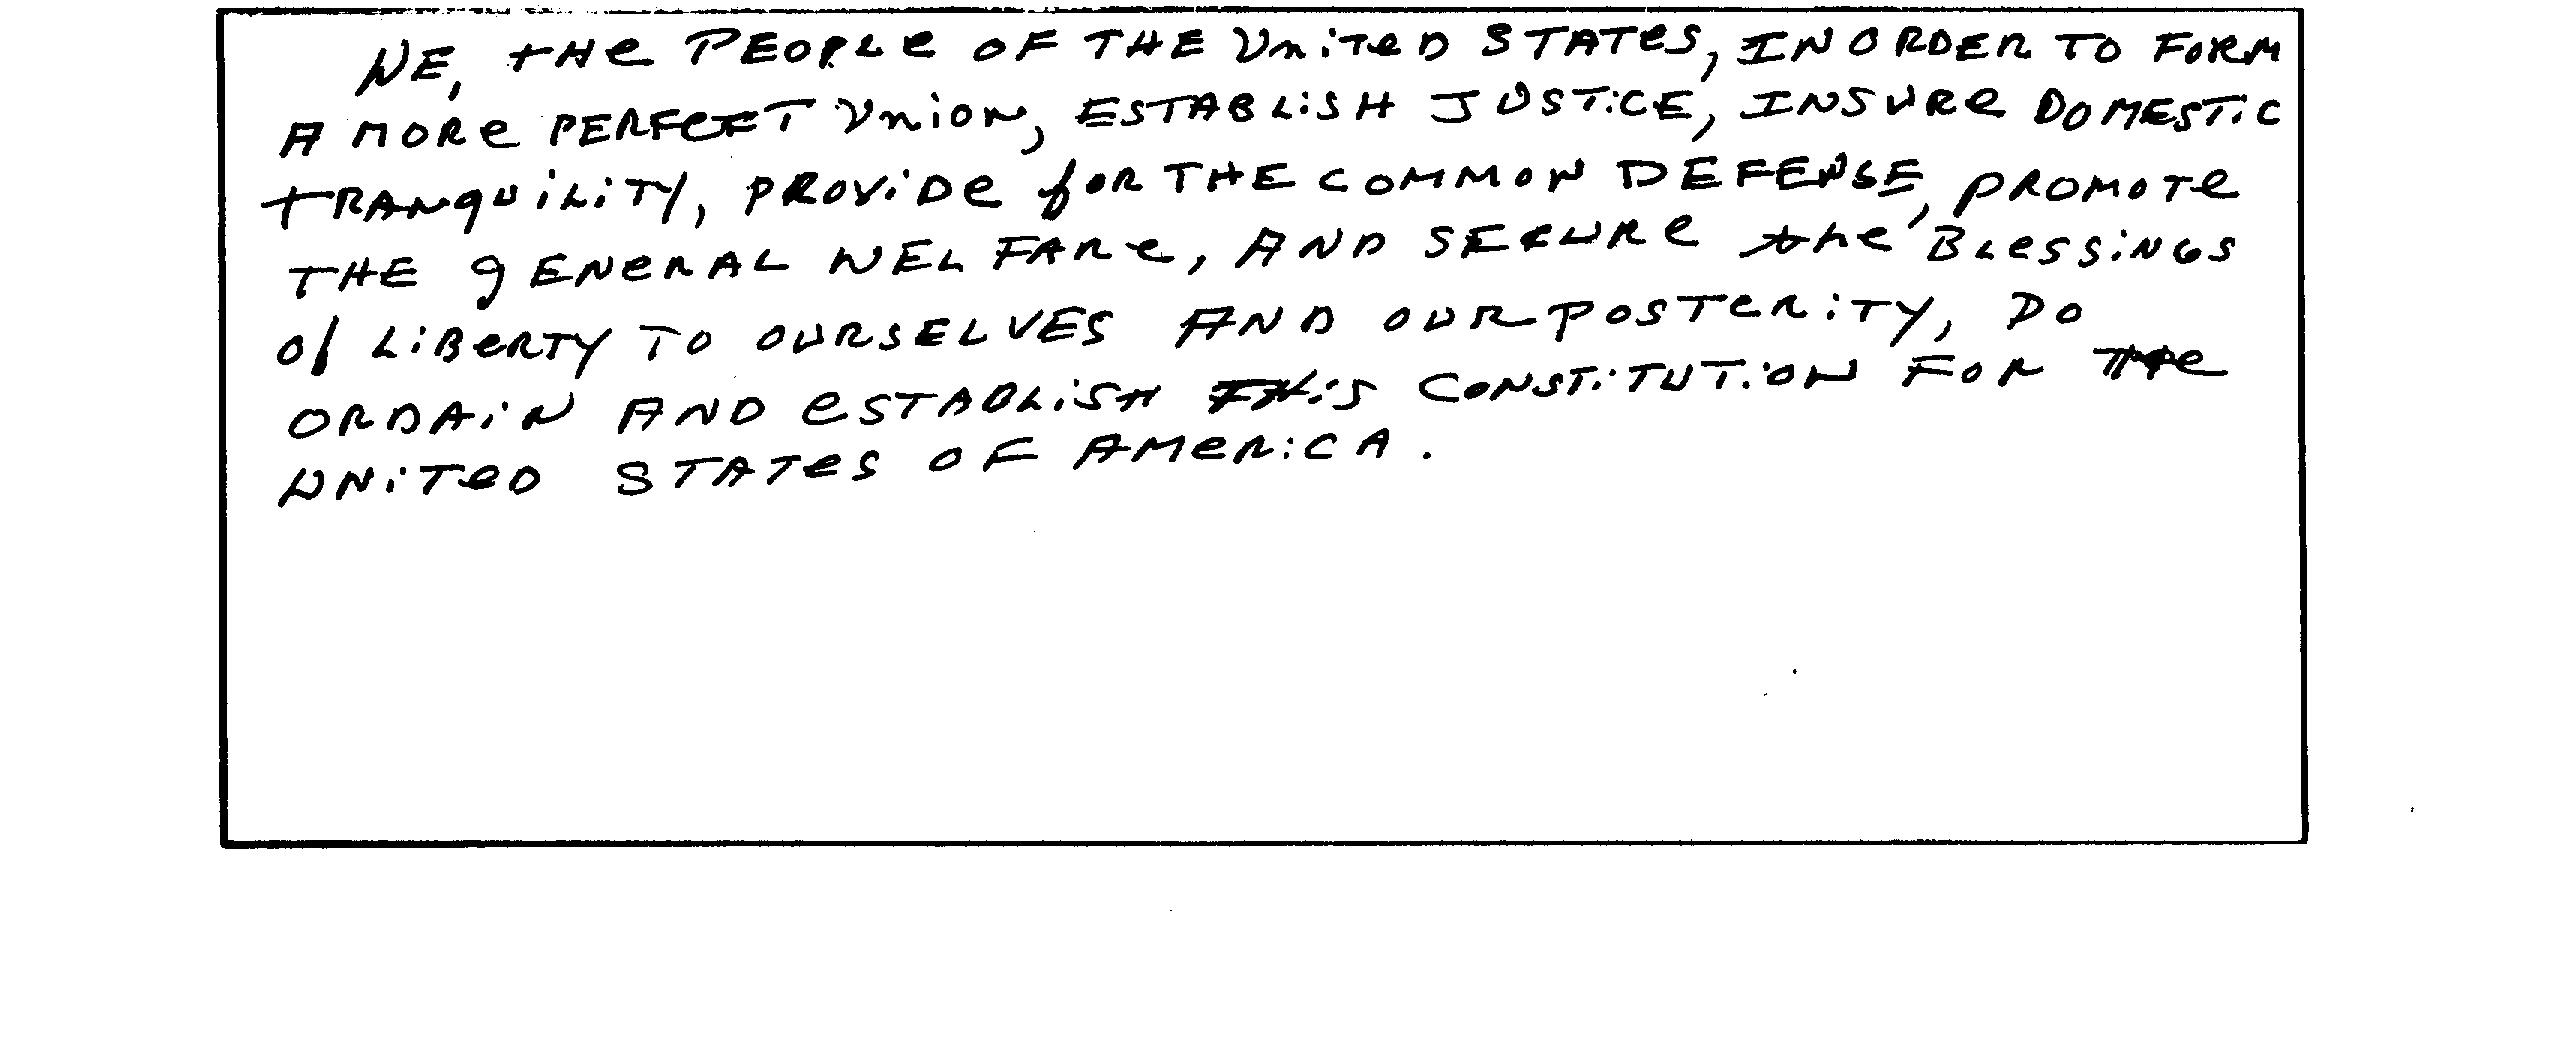 WE, tHe PEOPLe OF THE UniTeD STATeS, IN ORDER TO FORM
A MORe PERFeCT Union, ESTABLiSH JUSTiCE, INSURe DOMESTiC
tRANqUiLiTY, PROViDe foR THE COMMON DEFENSE, PROMOTe
THE gENeRAL WELFARe, AND SECURe the BLeSSiNGS
of LiBeRTY TO OURSELVES AND OUR POSTeRiTY, DO
ORDAiN AND eSTABLiSH THiS CONSTiTUTiON FOR THe
UNiTeD STATeS OF AMeRiCA.